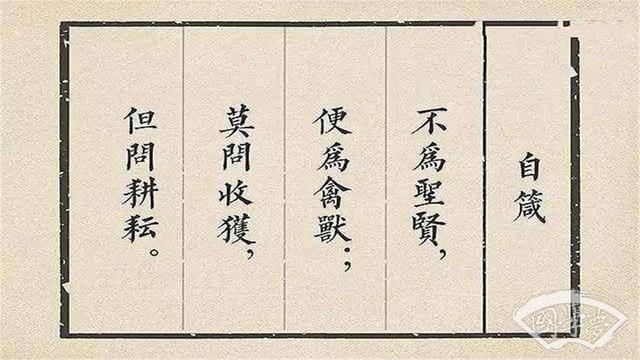 自箴
不爲聖賢，
便爲禽獸；
莫問收獲，
但問耕耘。
國學夢